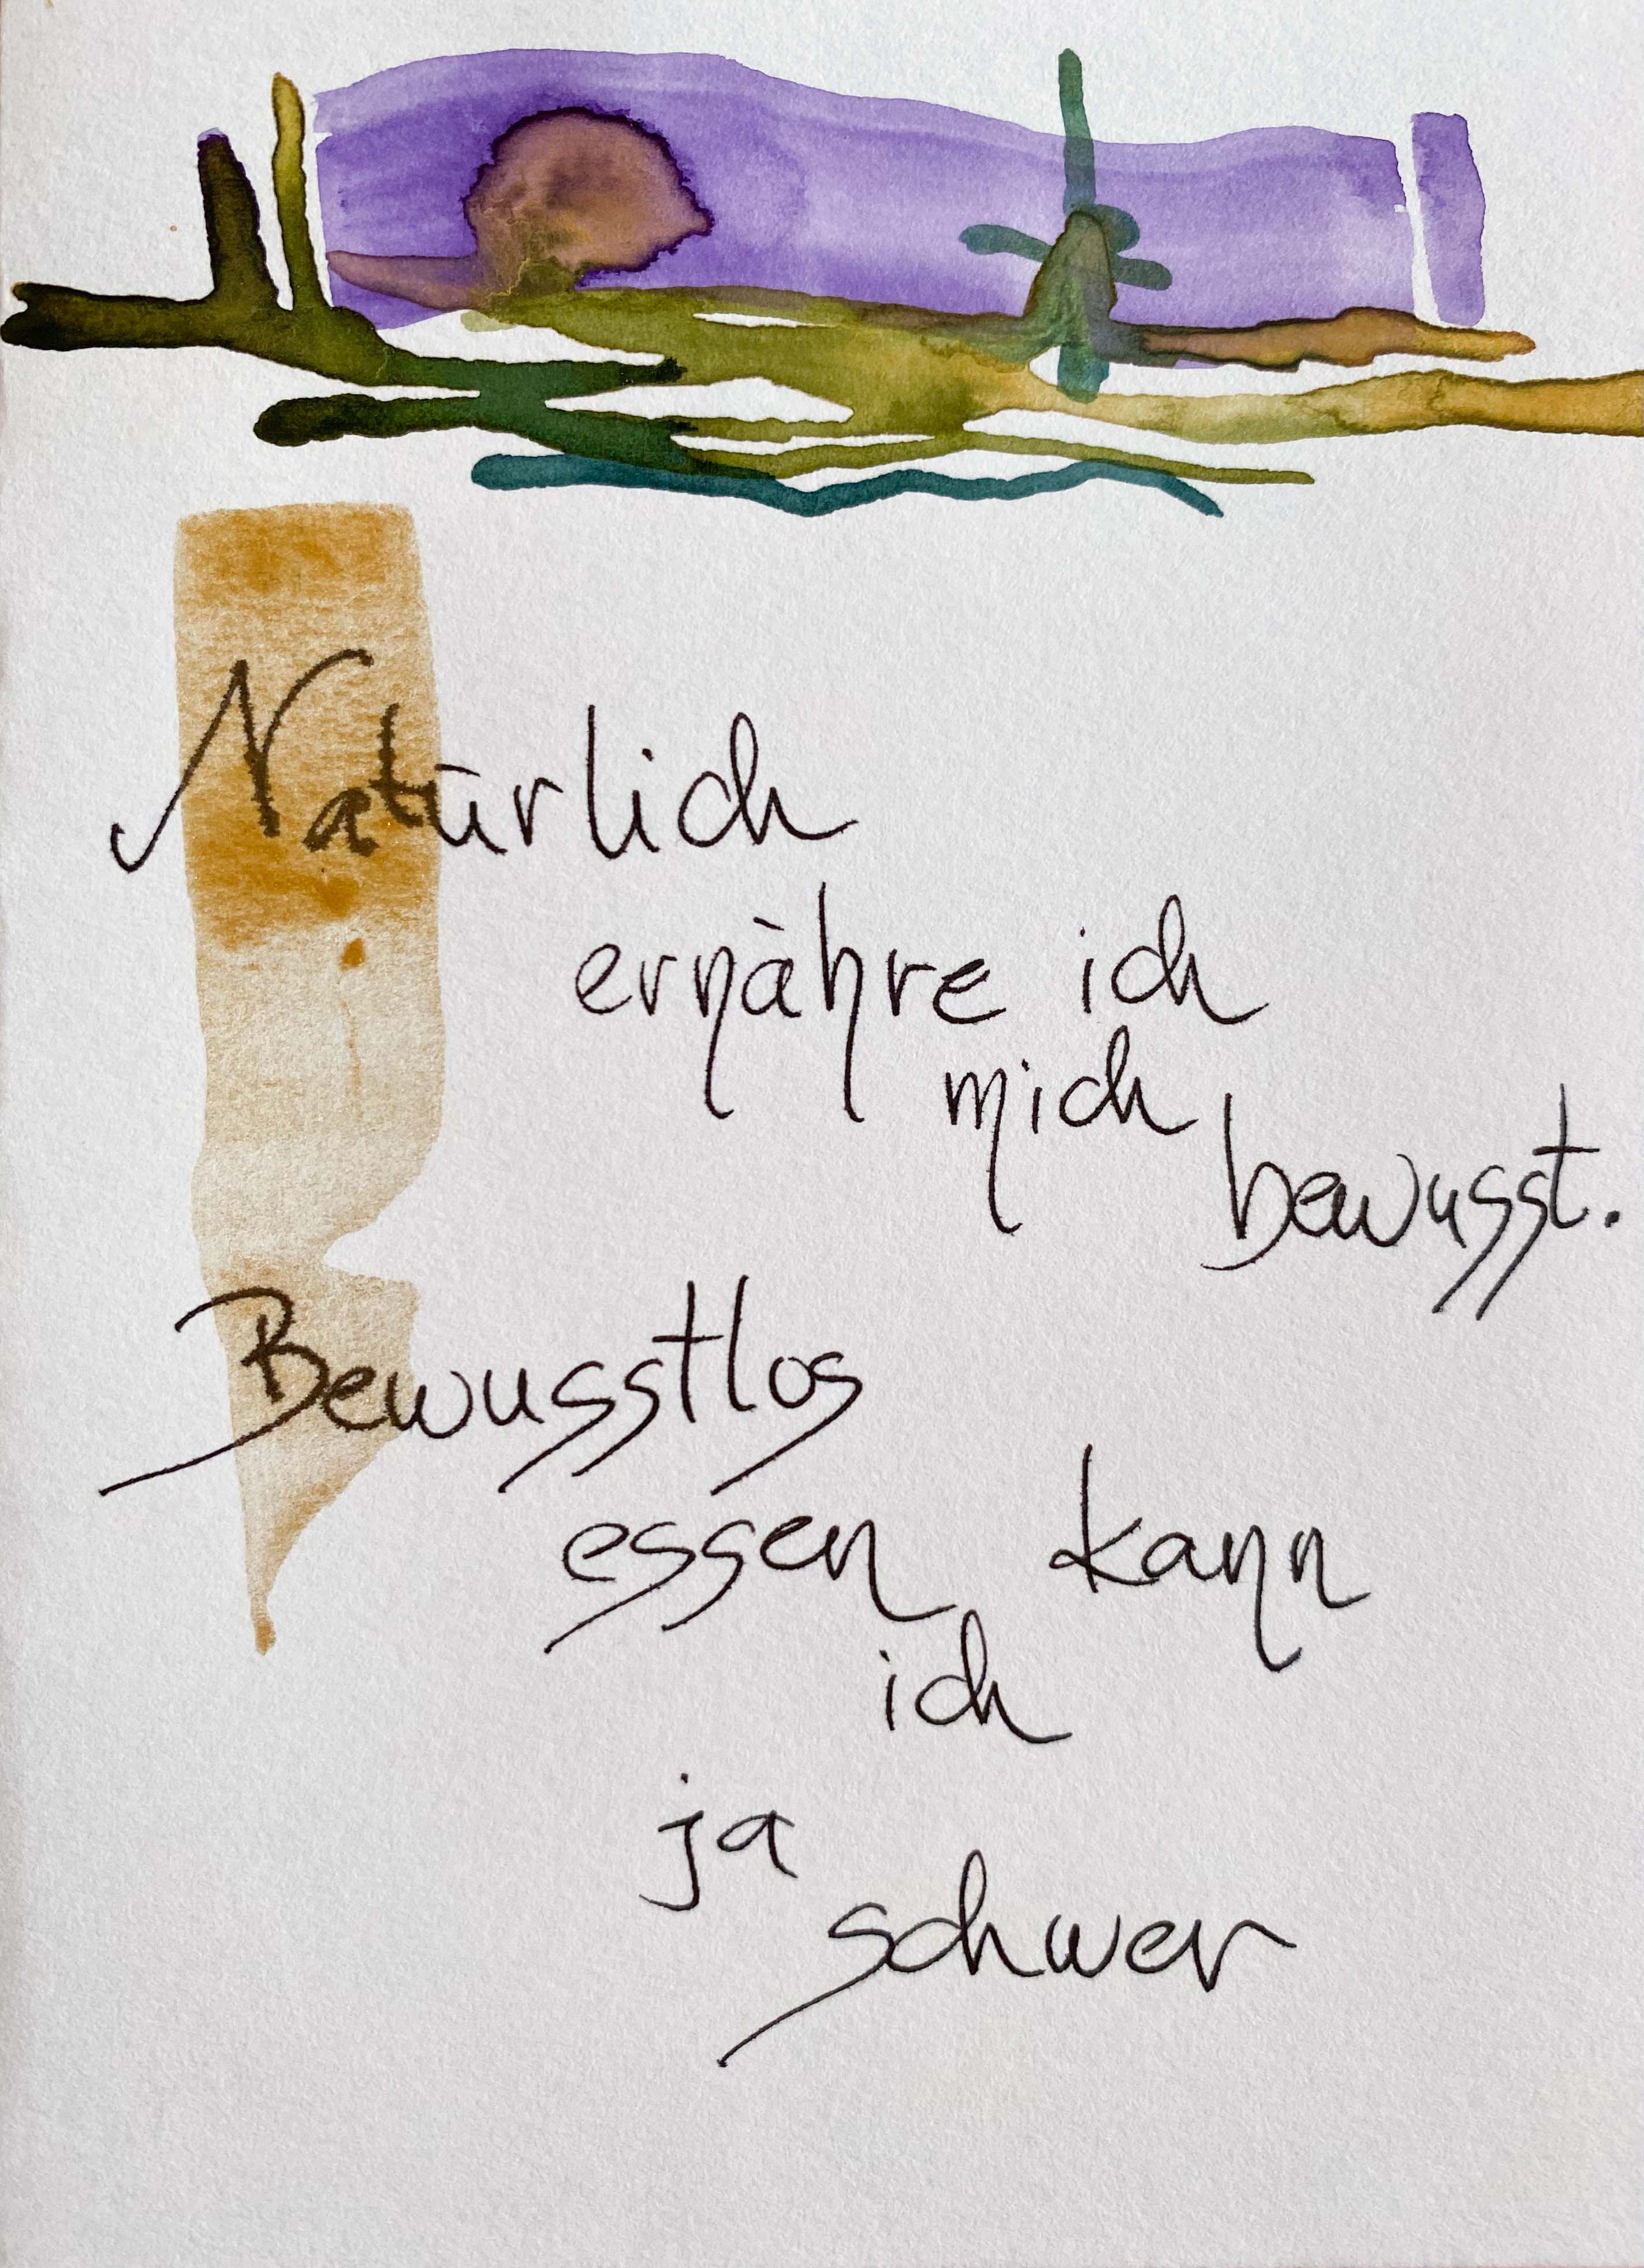 Natürlich
ernähre ich
mich
bewusst.
Bewusstlos
essen kann
ich
ja
schwer